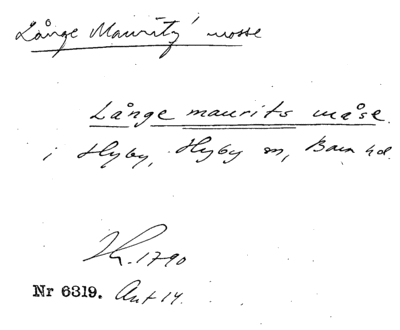 Långe Mauritz' mosse
Långe maurits måse
i Hyby, Hyby sn, Bara hd.
1790
Nr 6319. Avt 14.